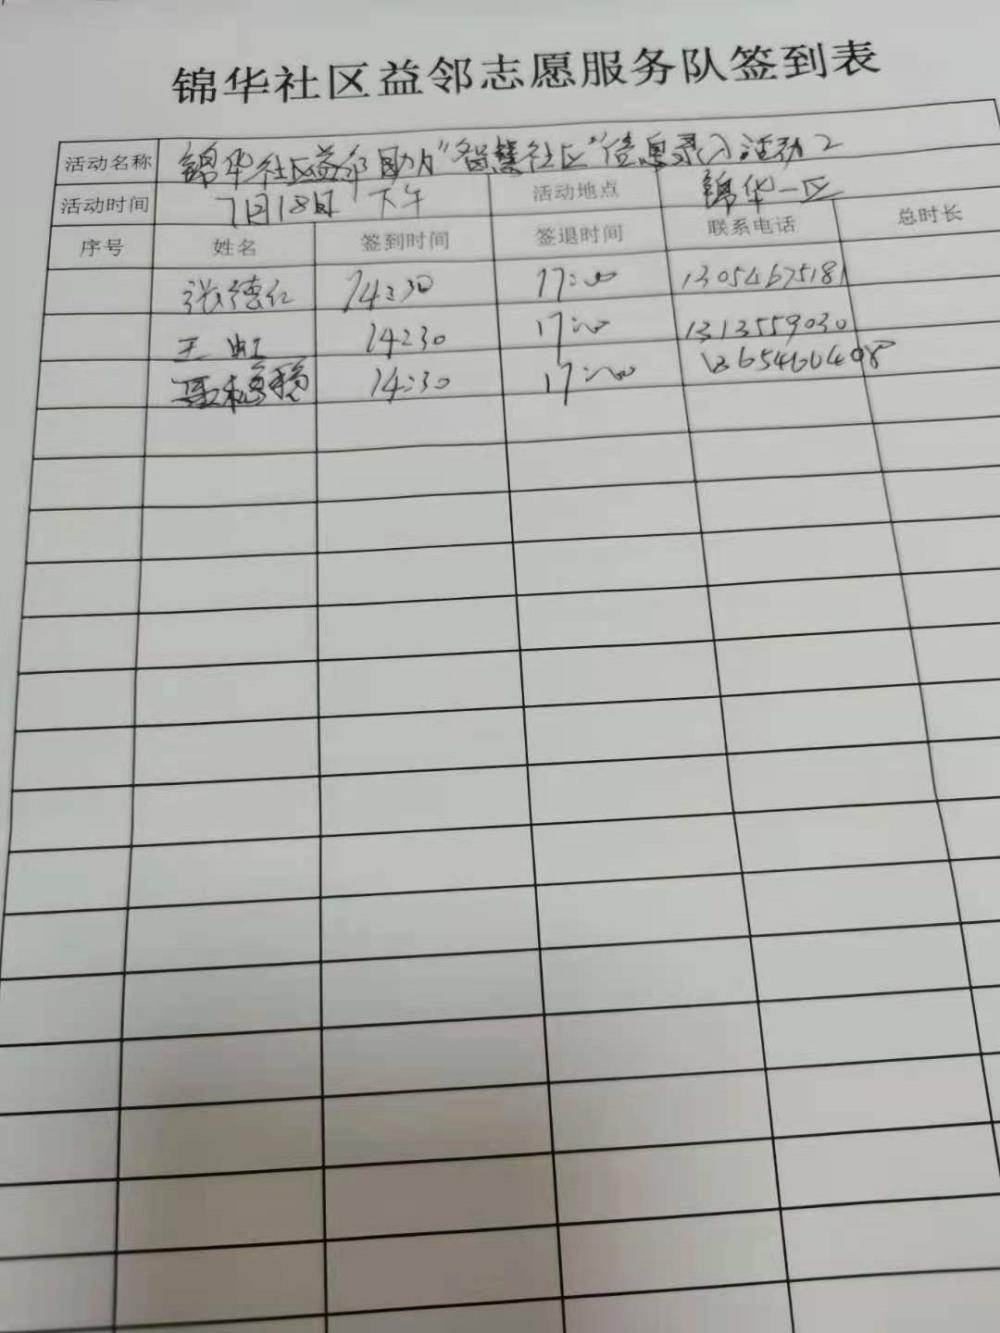 锦华社区益邻志愿服务队签到表
活动名称 锦华社区益邻助力“智慧社区”信息录入活动2
活动时间 7月18日 下午 活动地点 锦华一区
序号 姓名 签到时间 签退时间 联系电话 总时长
张德仁 14:30 17:00 13054675181
王虹 14:30 17:00 1313559030
14:30 17:00